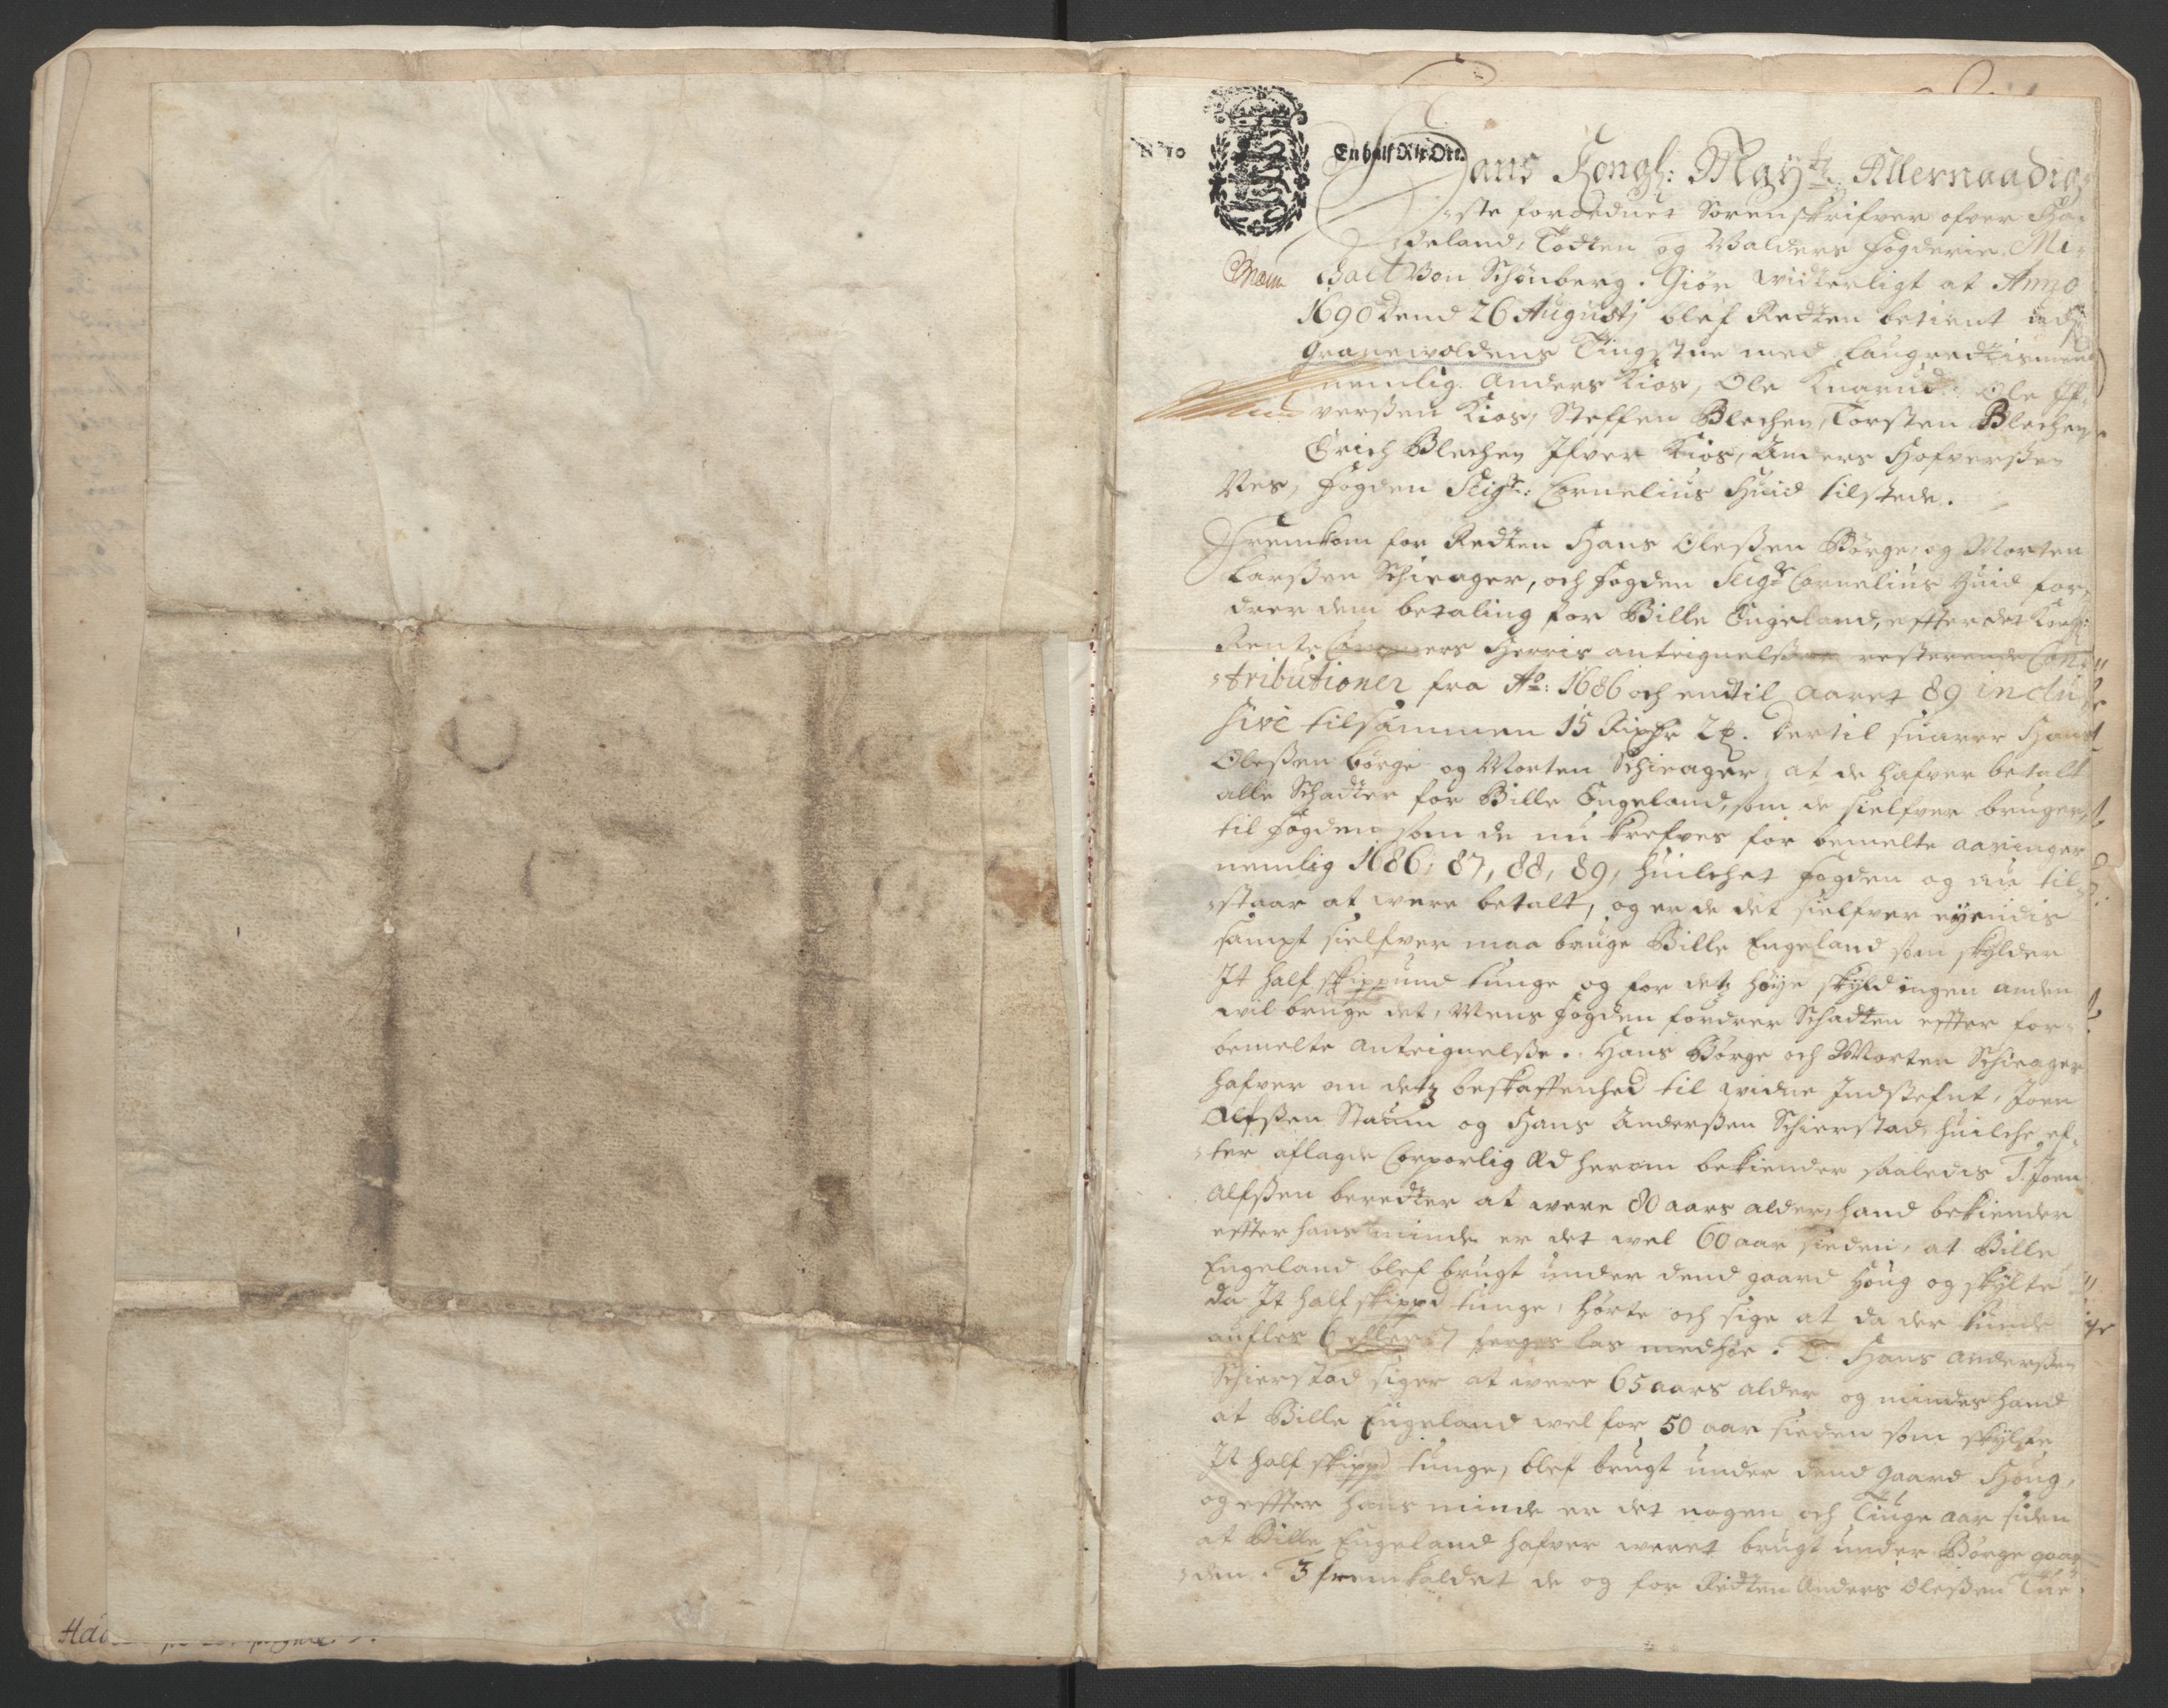 N° 10
En half Rix Ort
Hans Kongl: May:tz Allernaadig-
ste forordnet Sorenskrifver ofver Ha-
deland, Todten og Walders fogderie Mi-
chael Von Schönberg. Giör widterligt at Anno
1690 dend 26 Augustj blef Redten betient udj
Granewoldens Tingstue med Laugredtismend
nemlig. Anders Kios, Ole Knarud, Ole If-
verßen Kios, Steffen Blechen, Torsten Blechen
Erich Blechen Ifver Kios, Anders Hofverßen
Nes, fogden Seigr: Cornelius Huid tilstede.
Fremkom for Redten Hans Oleßen Börge, og Morten
Larßen Schieager, och fogden Seigr Cornelius Huid for-
drer dem betaling for Bille Engeland, effter det Kongl:
Rente Cammers Herris anteignelße resterende Con-
tributioner fra Ao: 1686 och endtil aaret 89 inclu
sive tilsammen 15 Rixdr 2 . Dertil suarer Hans
Oleßen börge og Morten Schieager, at de hafver betalt
alle Schadter for Bille Engeland, som de sielfver bruger,
til fogden som de nu krefves for bemelte aaringer
nemlig 1686, 87, 88, 89, huilchet fogden og nu til-
staar at were betalt, og er de det sielfver eyendis
sampt sielfver maa bruge Bille Engeland som skylder
It half skippund tunge og for detz höye skyld ingen anden
wil bruge det, Mens fogden fordrer Schadten effter for-
bemelte anteignelße. Hans Börge och Morten Schieager
hafver om detz beskaffenhed til widne Indstefnt, Joen
Alfßen Staum og Hans Anderßen Schierstad, huilche ef-
ter aflagde Corporlig Æd herom bekiender saaledis 1. Joen
Alfßen beredter at were 80 aars alder, hand bekiender
effter hans minde er det wel 60 aar sieden, at Bille
Engeland blef brugt under dend gaard Houg og skylte
da It half skippd tunge, hörte och sige at da der kunde
aufles 6 eller 7 las med höe. 2. Hans Anderßen
Schierstad siger at were 65 aars alder og mindes hand
at Bille Engeland wel for 50 aar sieden som skylte
It half skippd tunge, blef brugt under dend gaard Houg,
og effter hans minde er det nogen och Tiuge aar siden
at Bille Engeland hafver weret brugt under Börge gaar
den. 3 fremkaldet de og for Redten Anders Oleßen Tue